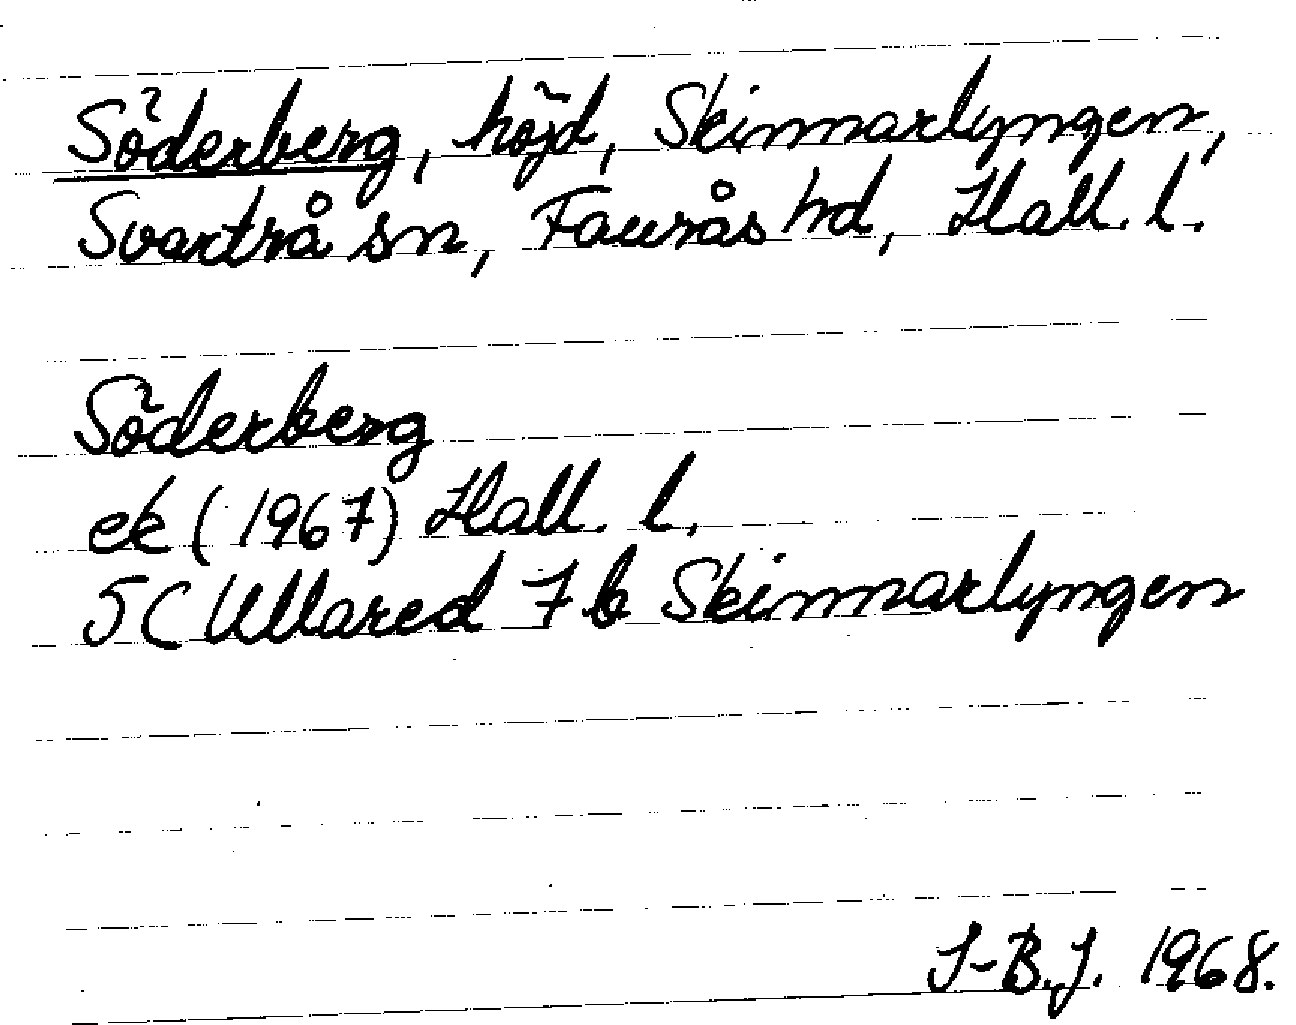 Söderberg, höjd, Skinnarlyngen,
Svartrå sn, Faurås hd, Hall. l.
Söderberg
ek (1967) Hall. l.
5C Ullared 7b Skinnarlyngen
I-B.J. 1968.